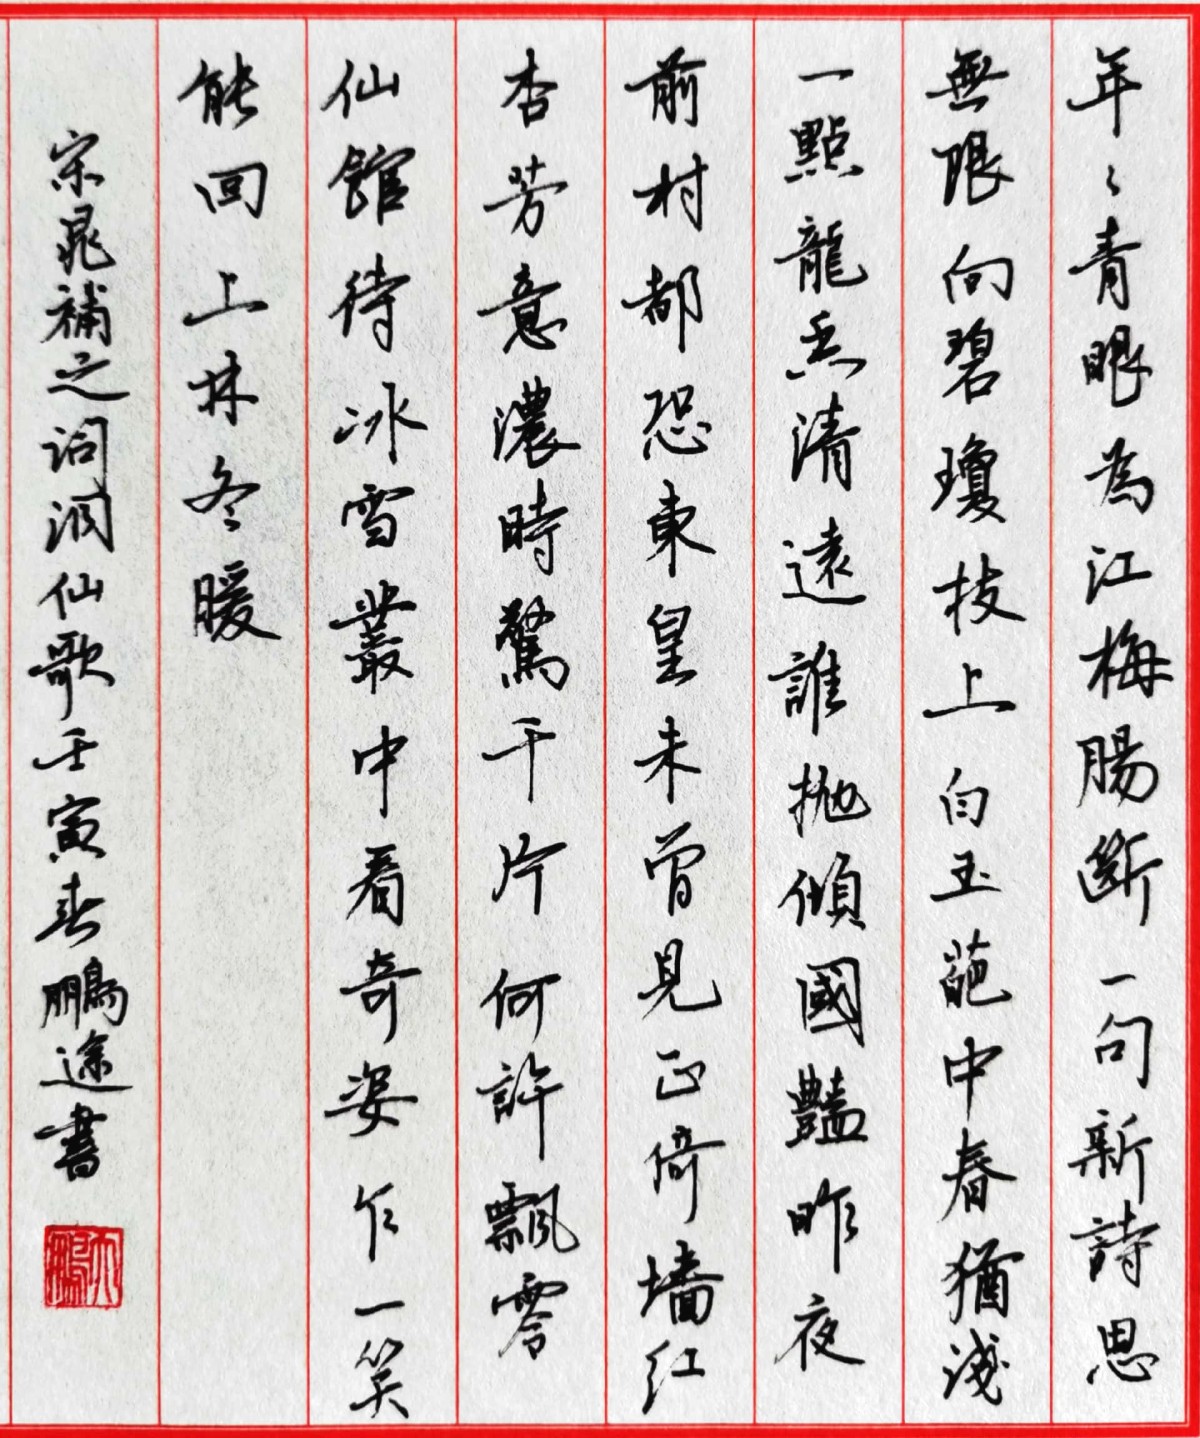 年〻青眼為江梅腸斷一句新詩思
無限向碧瓊枝上白玉葩中春猶淺
一點龍香清遠誰拋傾國豔昨夜
前村都恐東皇未曾見正倚墙紅
杏芳意濃時驚千片何許飄零
仙館待冰雪叢中看奇姿乍一笑
能回上林冬暖
宋晁補之詞洞仙歌壬寅春鵬途書